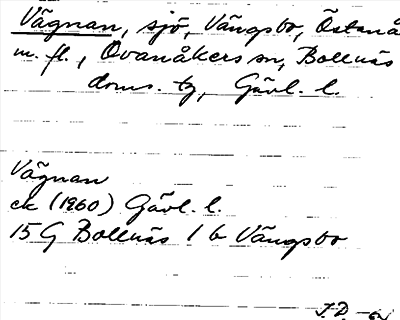 Vägnan, sjö, Vängsbo, Östanå
m. fl., Ovanåkers sn, Bollnäs
doms. tg, Gävl. l.
Vägnan
ek (1960) Gävl. l.
15 G Bollnäs 1 b Vängsbo
J.D. -61